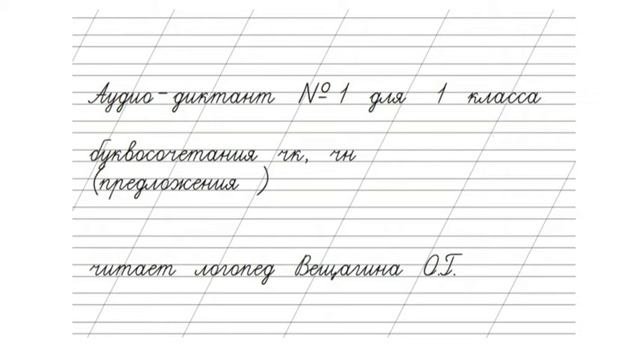 Аудио-диктант № 1 для 1 класса
буквосочетания чк, чн
(предложения )
читает логопед Вещагина О.Г.